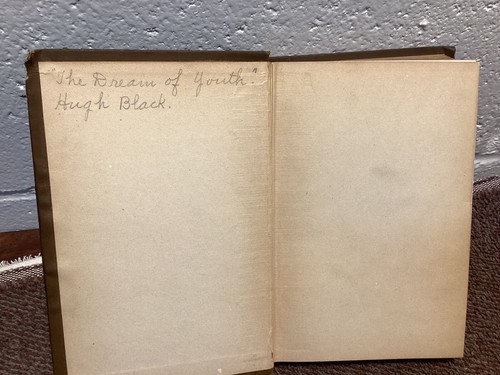 "The Dream of Youth."
Hugh Black.